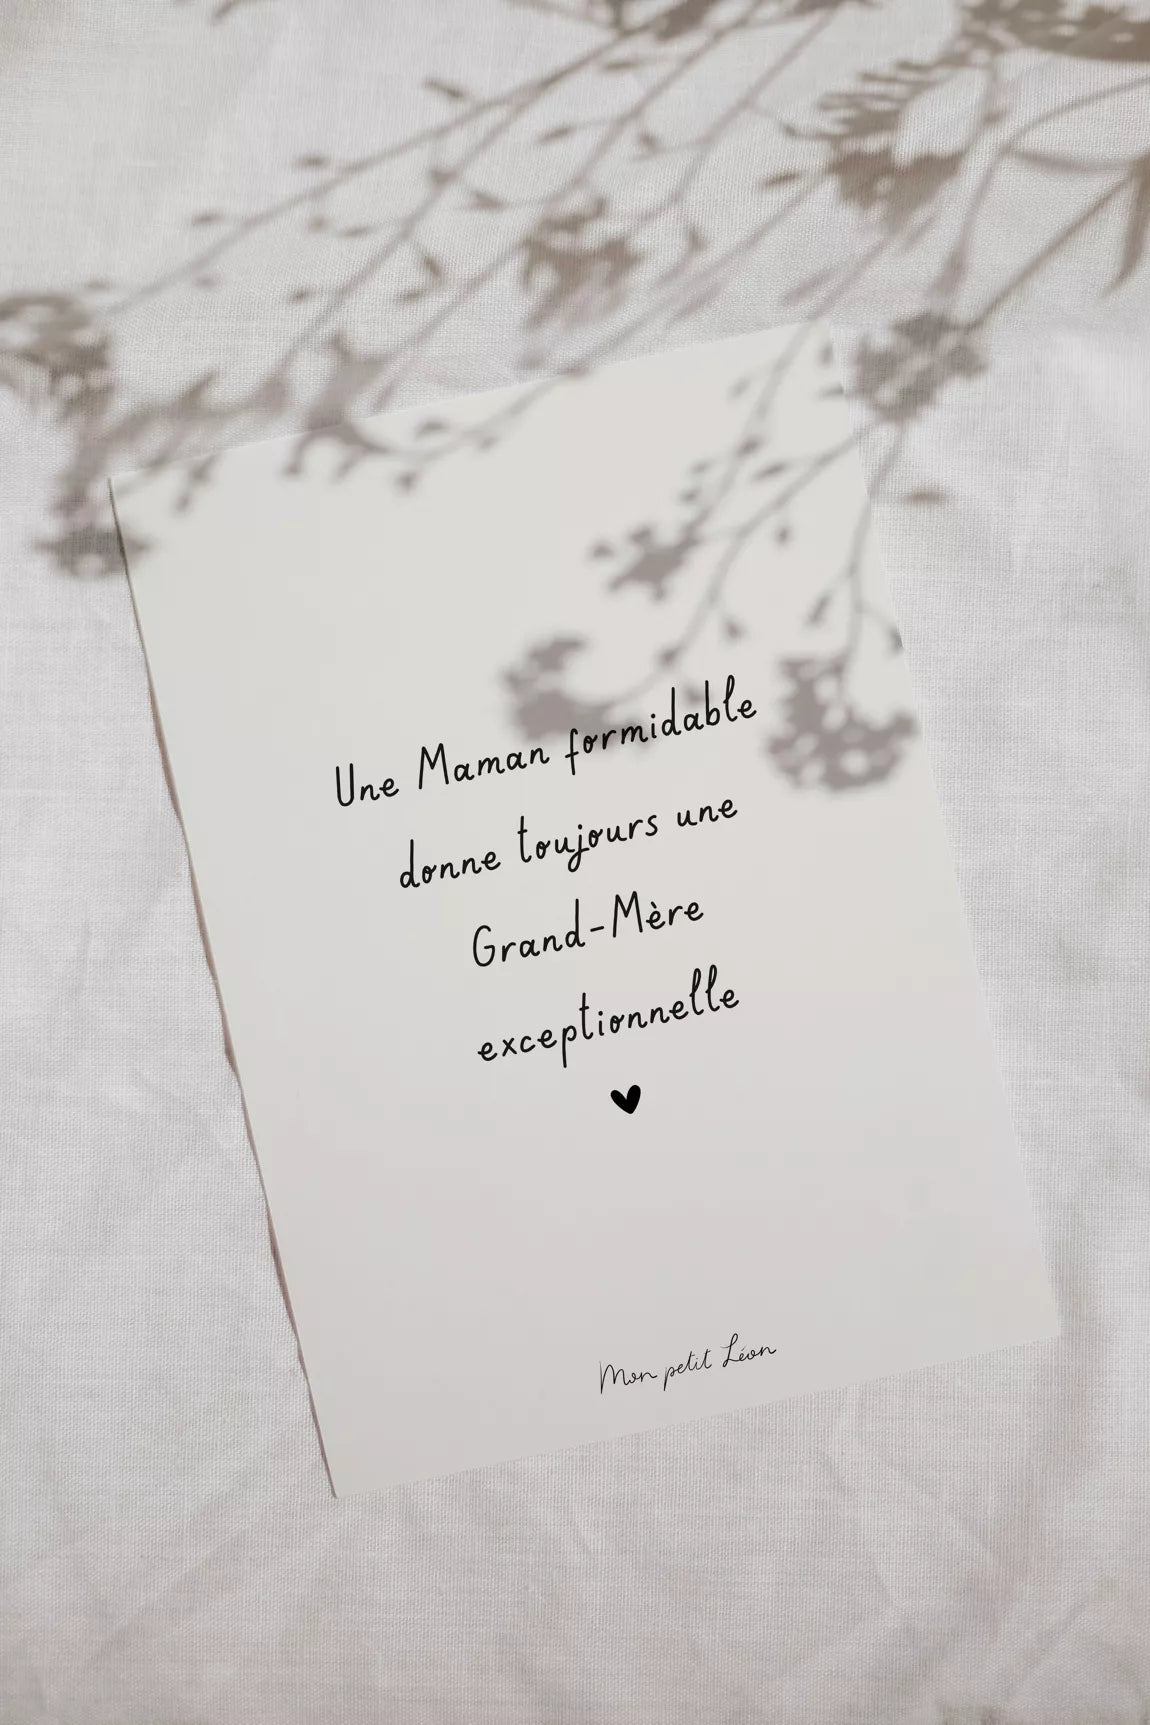 Une Maman formidable
donne toujours une
Grand-Mère
exceptionnelle
Mon petit Léon